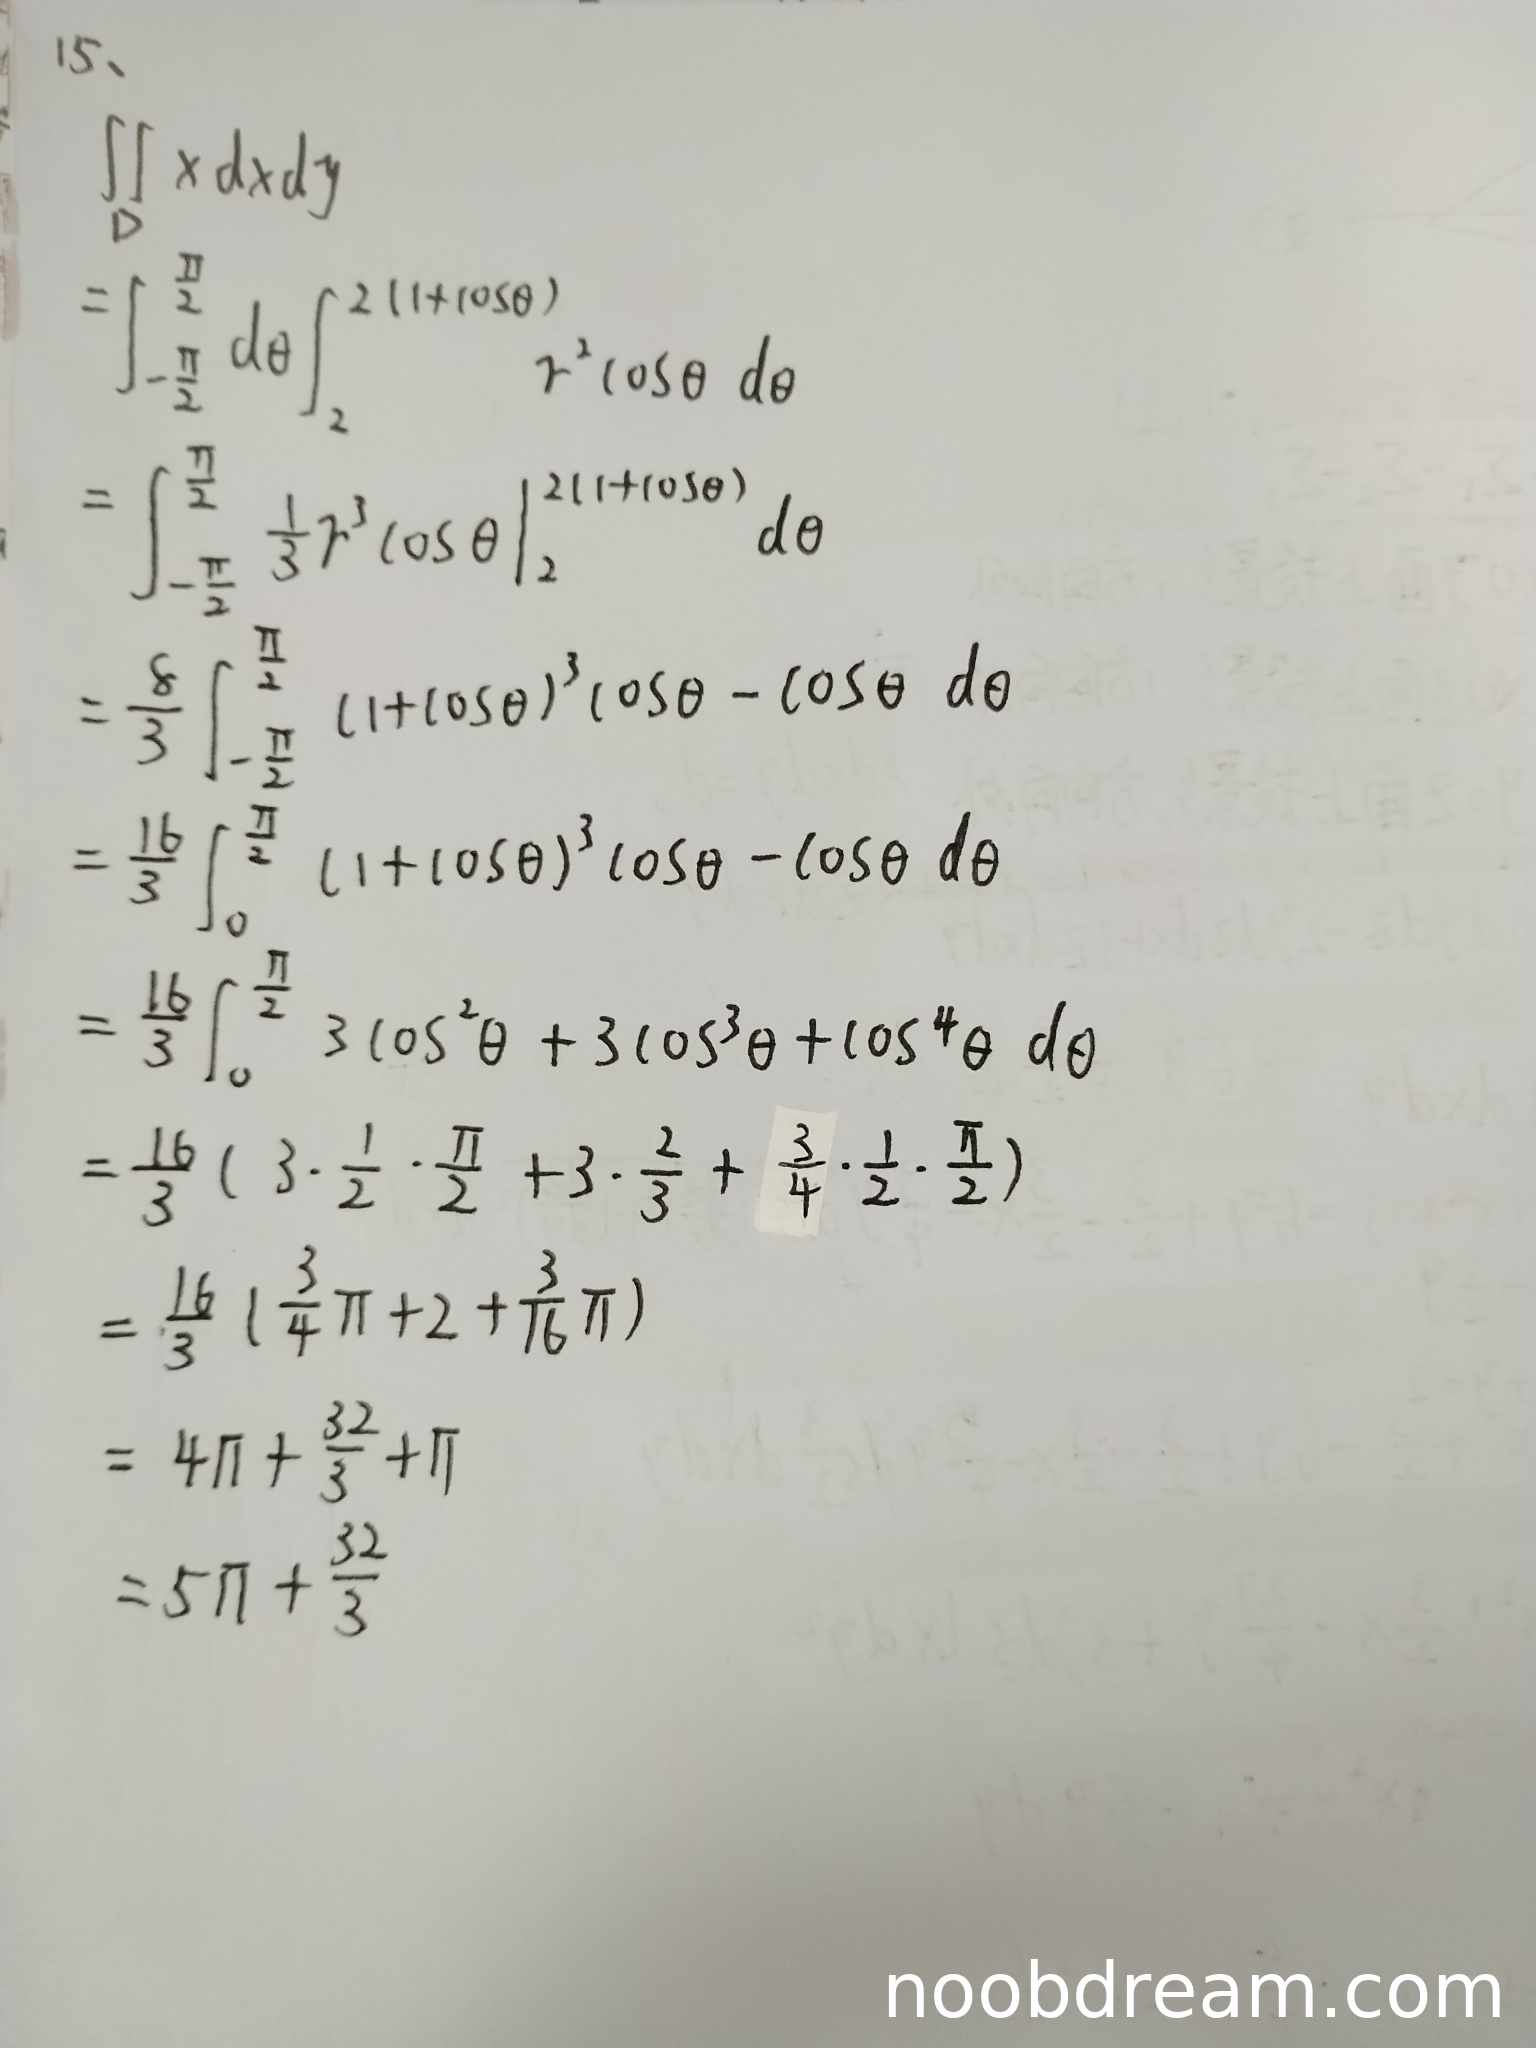 15、
∬_D x dxdy
= ∫_{-π/2}^{π/2} dθ ∫_2^{2(1+cosθ)} r² cosθ dθ
= ∫_{-π/2}^{π/2} 1/3 r³ cosθ |_2^{2(1+cosθ)} dθ
= 8/3 ∫_{-π/2}^{π/2} (1+cosθ)³ cosθ - cosθ dθ
= 16/3 ∫_0^{π/2} (1+cosθ)³ cosθ - cosθ dθ
= 16/3 ∫_0^{π/2} 3cos²θ + 3cos³θ + cos⁴θ dθ
= 16/3 ( 3 · 1/2 · π/2 + 3 · 2/3 + 3/4 · 1/2 · π/2 )
= 16/3 ( 3/4 π + 2 + 3/16 π )
= 4π + 32/3 + π
= 5π + 32/3
noobdream.com